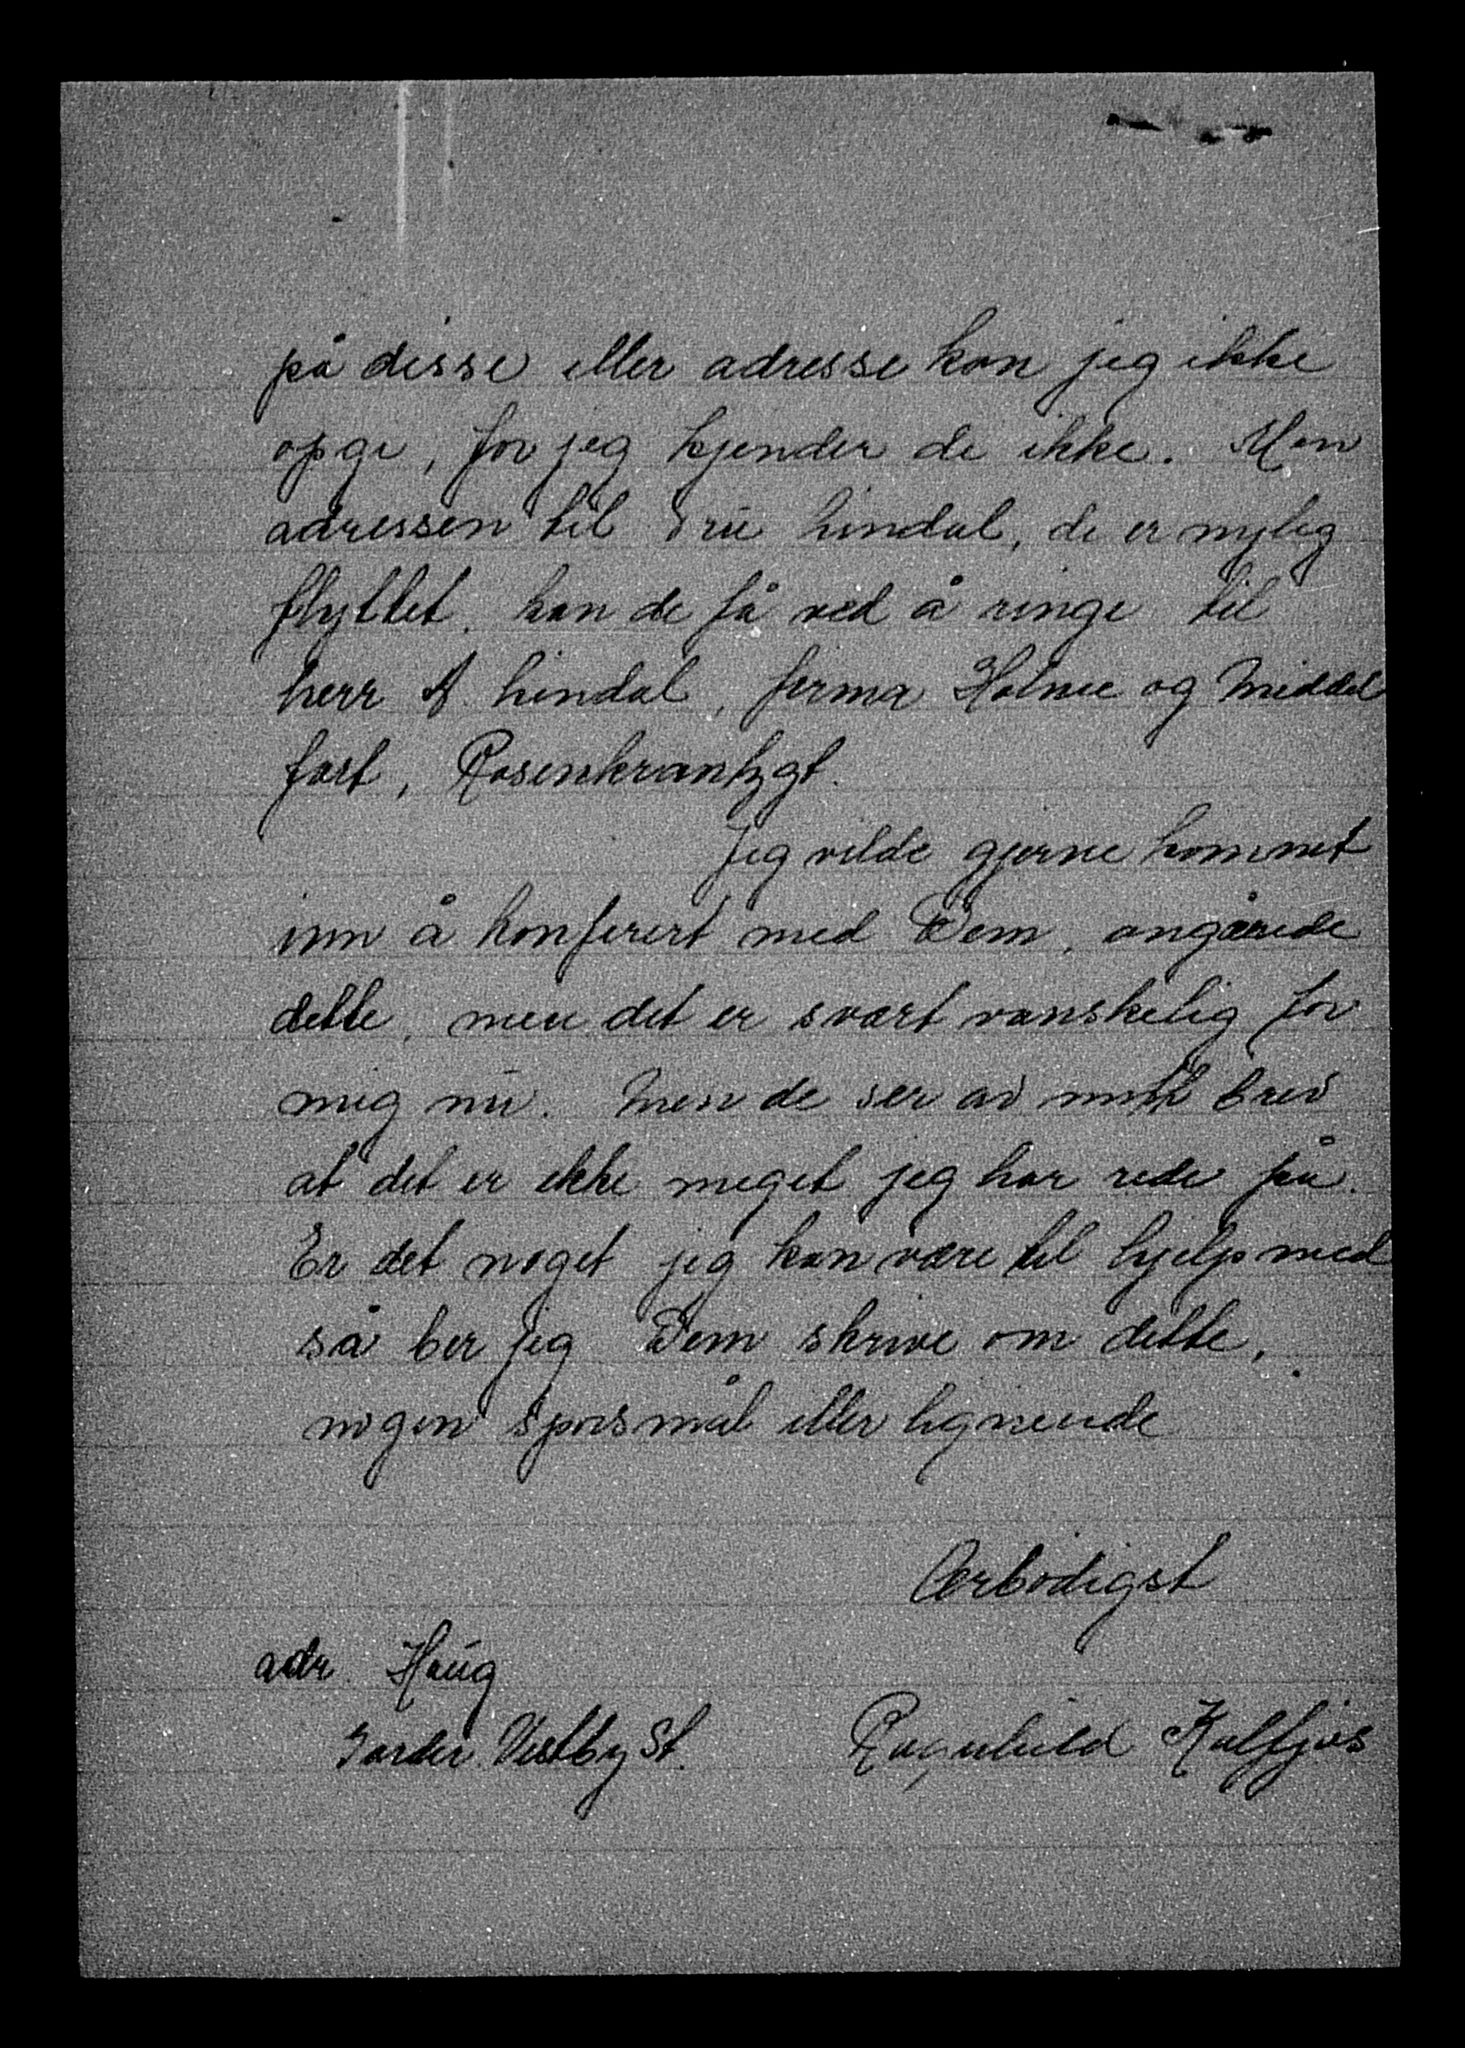 på disse eller adresse kan jeg ikke
opgi, for jeg kjender de ikke. Men
adressen til Fru Lindal, de er nylig
flyttet. kan de få ved å ringe til
herr A. Lindal, firma Holme og Middel
fart, Rosenkrantzgt.
Jeg vilde gjerne kommet
inn å konferert med Dem, angårede
dette, men det er svært vanskelig for
mig nu. Men de ser av mitt brev
at det er ikke meget jeg har rede på.
Er det noget jeg kan være til hjelp med
så ber jeg Dem skrive om dette,
nogen spørsmål eller lignende
Ærbødigst
adr. Haug
Garder. Vestby St.
Ragnhild